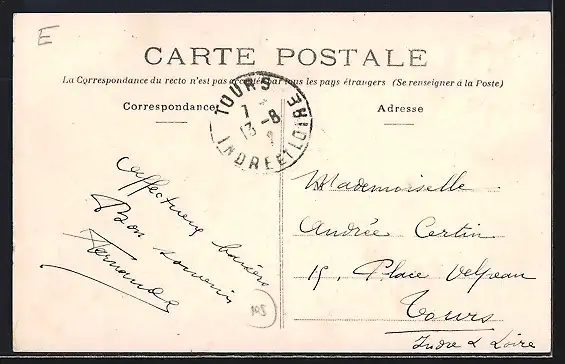 E
CARTE POSTALE
La Correspondance du recto n'est pas acceptée par tous les pays étrangers (Se renseigner à la Poste)
Correspondance
Adresse
TOURS
7
13-8
INDRE ET LOIRE
affectueux baisers
Bon souvenir
Fernande
105
Mademoiselle
Andrée Certin
15, Place Velpeau
Tours
Indre & Loire